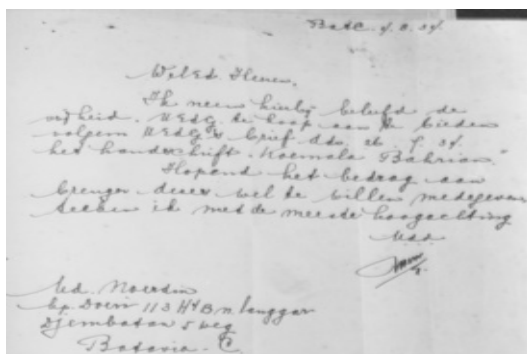 Batc. 4. 8. 34.
Wel Ed. Heer.
Ik neem hierbij beleefd de
vrijheid. UEdG. te koop aan te bieden
volgens UEdG's brief ddo. 26. 7. 34.
het handschrift "Koemala Bahrian."
Hopend het bedrag aan
brenger dezer wel te willen medegeven
teeken ik met de meeste hoogachting
Md. Noerdin
Kp. Doeri 113 Ht B n. langgar
Djembatan 5 weg
Batavia - C.